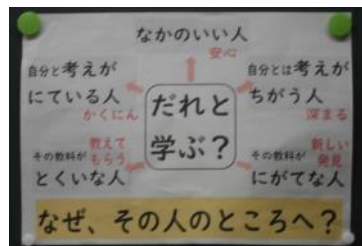 なかのいい人
安心
自分と考えが
にている人
かくにん
自分とは考えが
ちがう人
深まる
だれと
学ぶ？
教えて
もらう
その教科が
とくいな人
新しい
発見
その教科が
にがてな人
なぜ、その人のところへ？